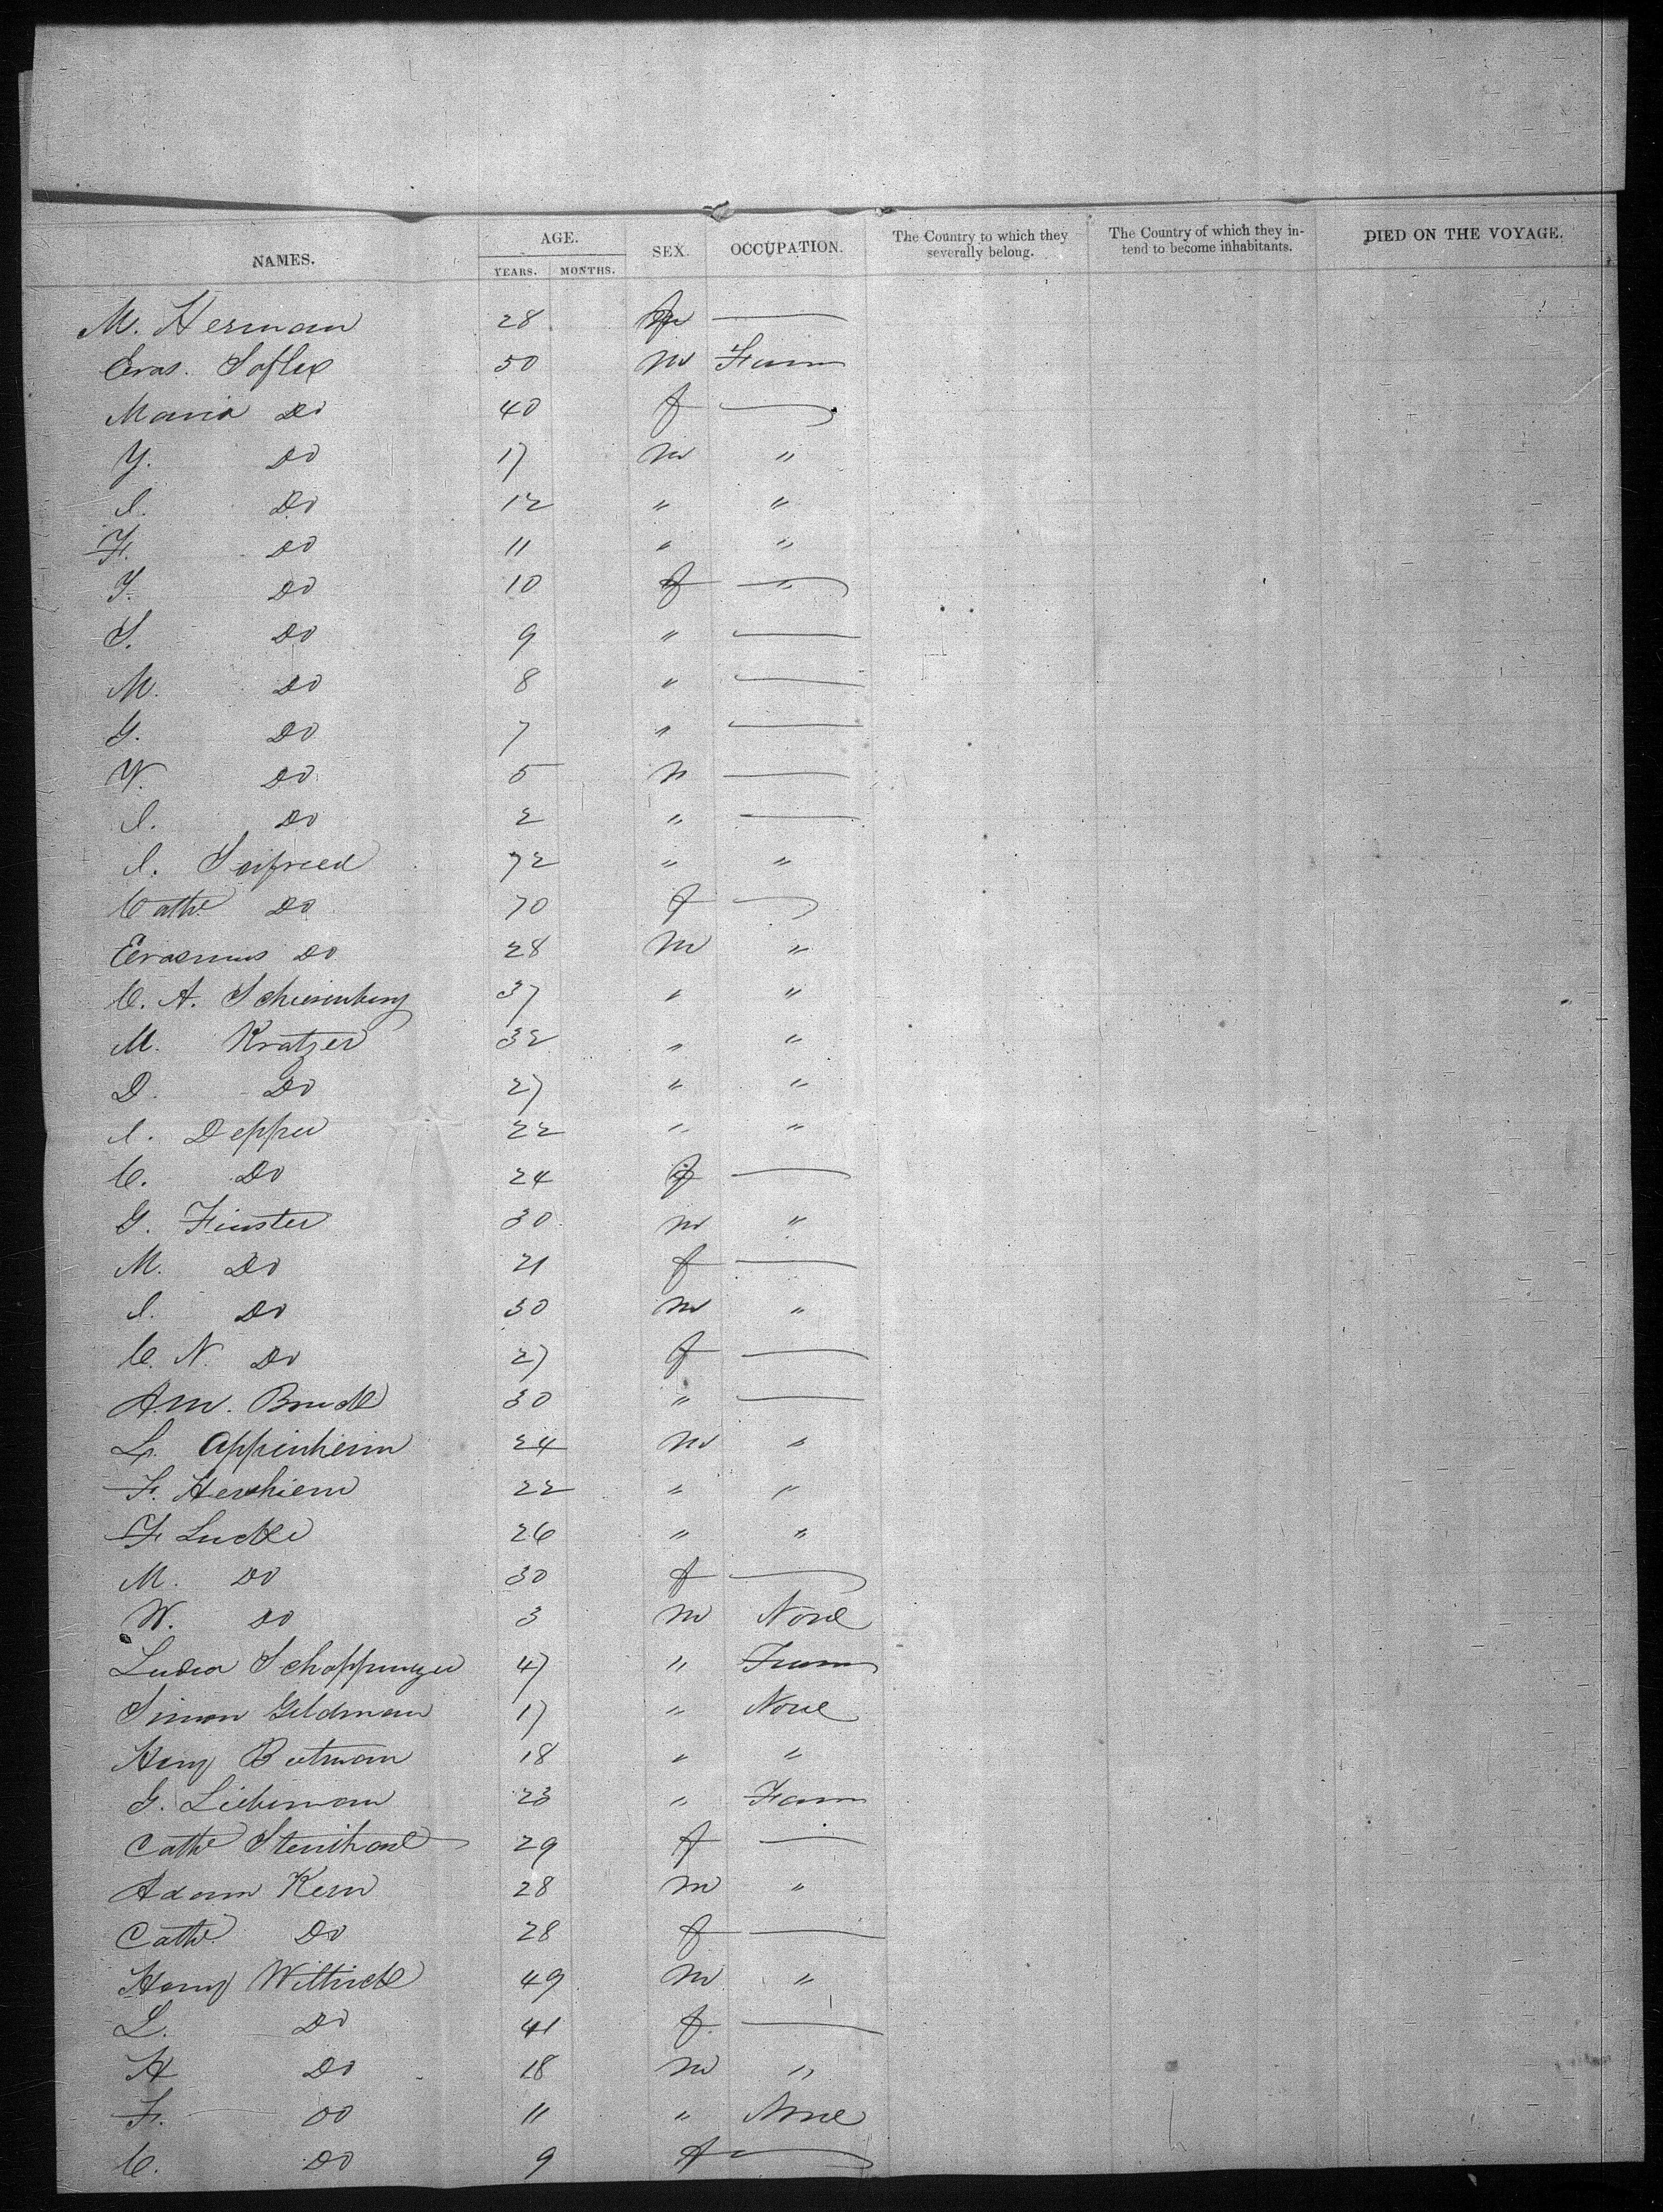 NAMES. AGE. SEX. OCCUPATION. The Country to which they severally belong. The Country of which they intend to become inhabitants. DIED ON THE VOYAGE.
YEARS. MONTHS.
M. Herman 28 f —
Eras. 50 m Farm
Maria Do 40 f —
Y. Do 17 m "
I. Do 12 " "
F. Do 11 " "
Do 10 f "
S. Do 9 " —
M. Do 8 " —
G. Do 7 " —
Do 5 m —
I. Do 2 " —
I. Seifried 72 " "
Cathe Do 70 f —
Erasmus Do 28 m "
C. A. 37 " "
M. Kratzer 32 " "
D. Do 27 " "
I. Depper 22 " "
C. Do 24 f —
G. Finster 30 m "
M. Do 21 f —
I. Do 30 m "
C. N. Do 27 f —
A.M. 30 " —
L. Appinheim 24 m "
F. 22 " "
F Lucke 26 " "
M. Do 30 f —
W. Do 3 m None
47 " Farm
Simon Geldman 17 " None
Heny 18 " "
G. Lieberman 23 " Farm
Cathe 29 f —
Adam Kern 28 m "
Cathe Do 28 f —
Heny Wittick 49 m "
L. Do 41 f —
H Do 18 m "
F. Do 11 " None
C. Do 9 f —